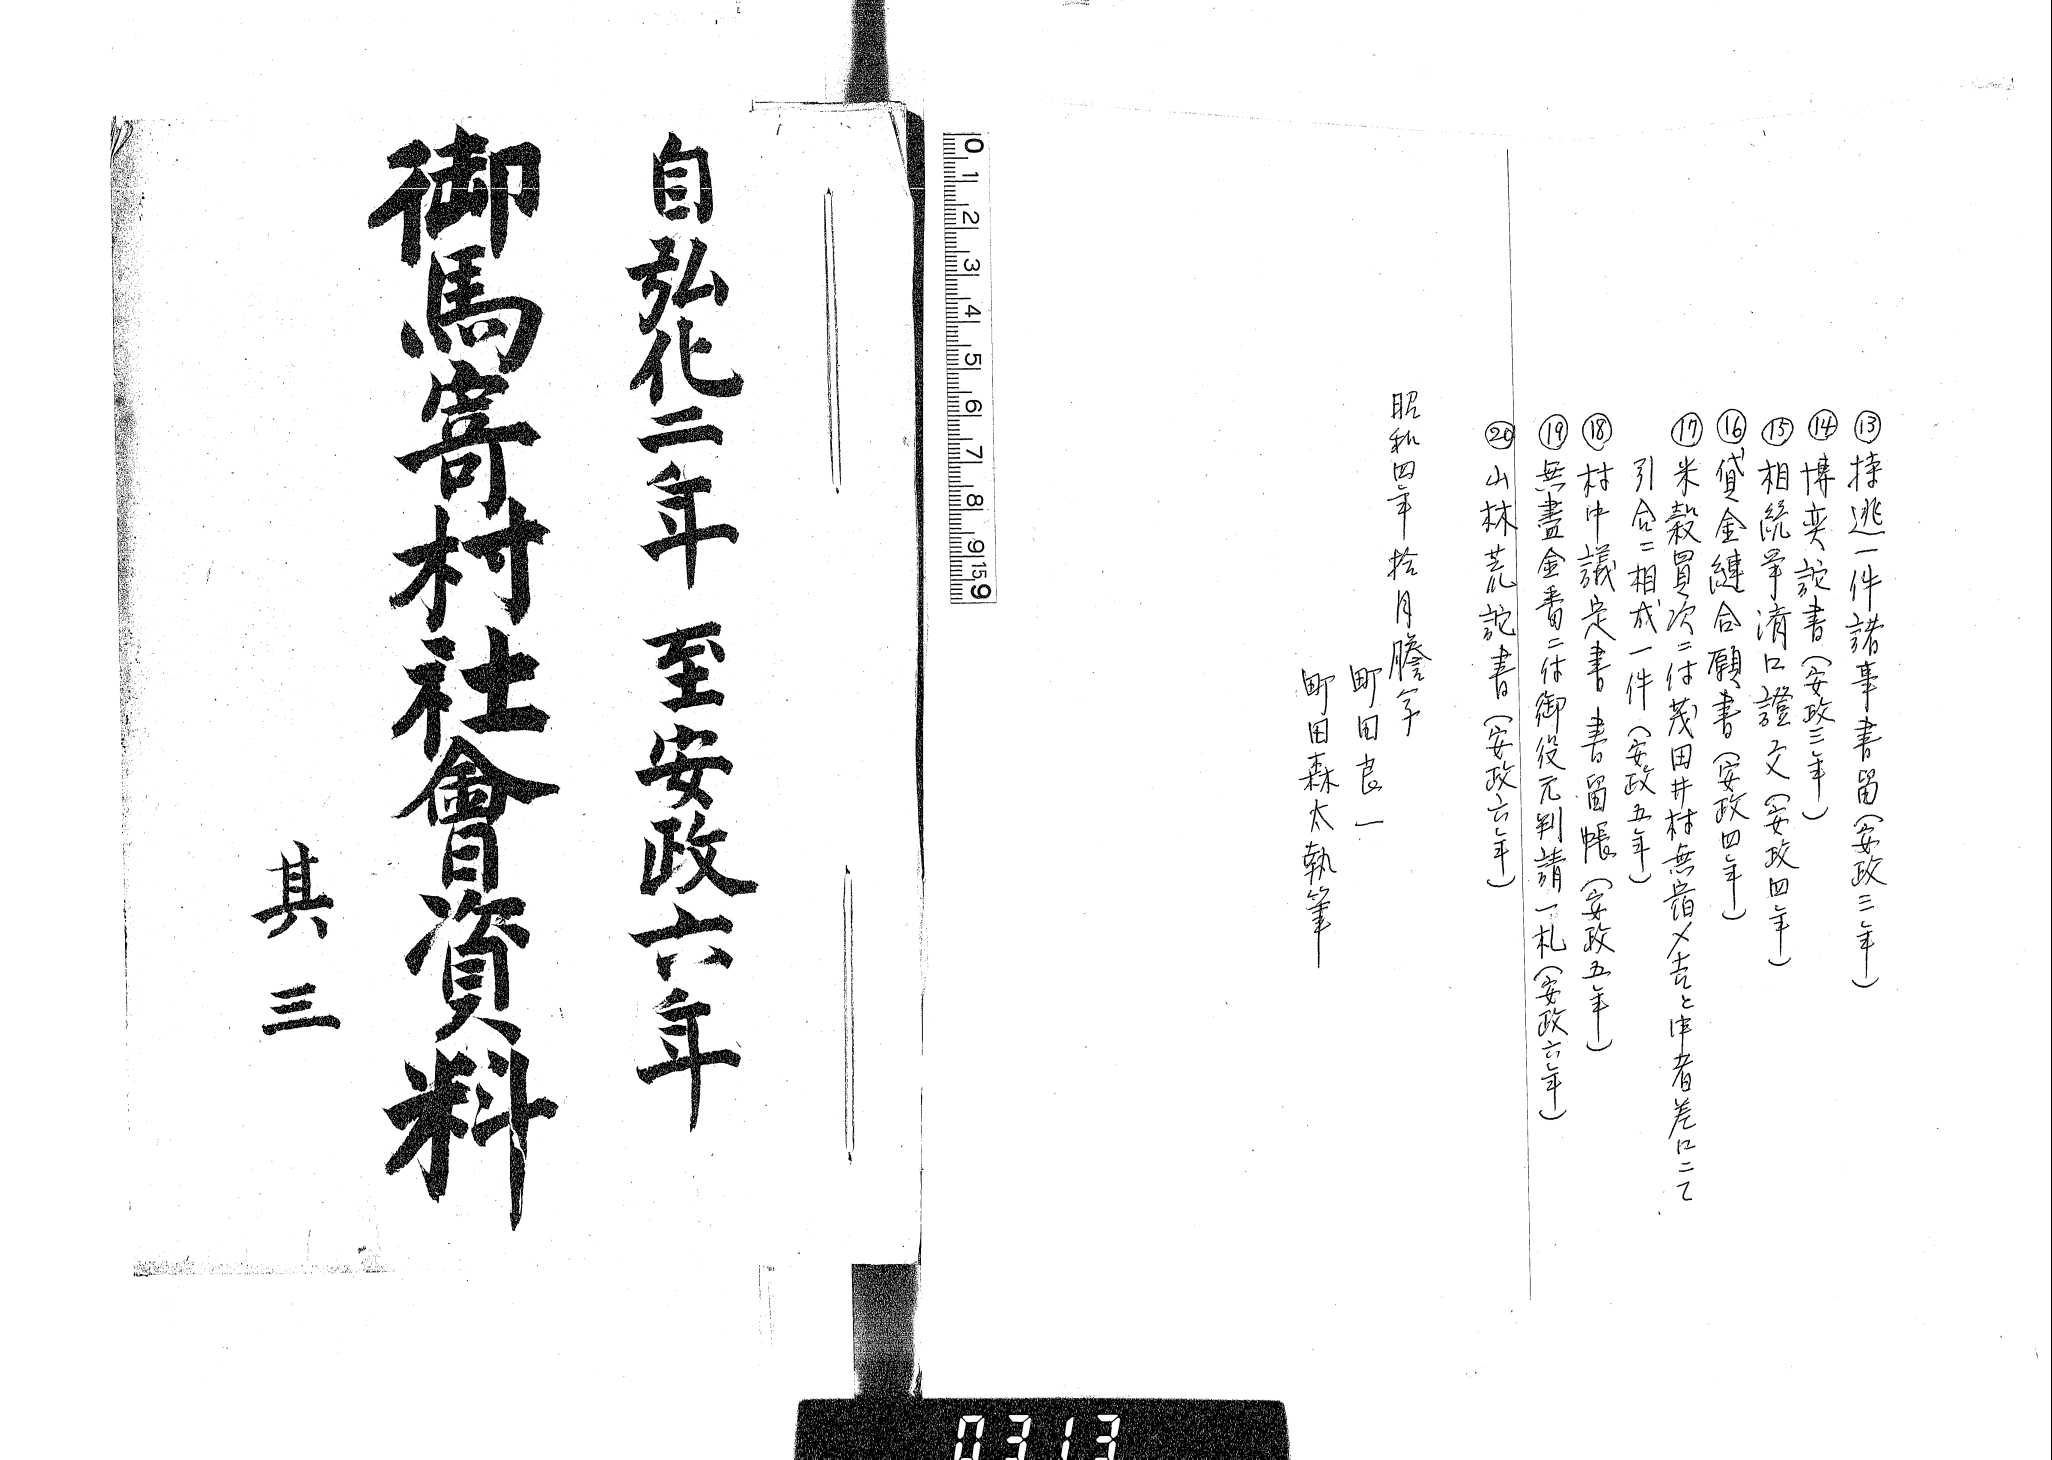 ⑬持逃一件諸事書留(安政三年)
⑭博奕詫書(安政三年)
⑮相続争済口證文(安政四年)
⑯貸金縺合願書(安政四年)
⑰米穀買次ニ付茂田井村無宿〆吉と申者差口ニて
引合ニ相成一件(安政五年)
⑱村中議定書書留帳(安政五年)
⑲無盡金番ニ付御役元判請一札(安政六年)
⑳山林荒詫書(安政六年)
昭和四年拾月謄写
町田良一
町田森太執筆
0 1 2 3 4 5 6 7 8 9 15 9
自弘化二年 至安政六年
御馬寄村社會資料
其三
0313